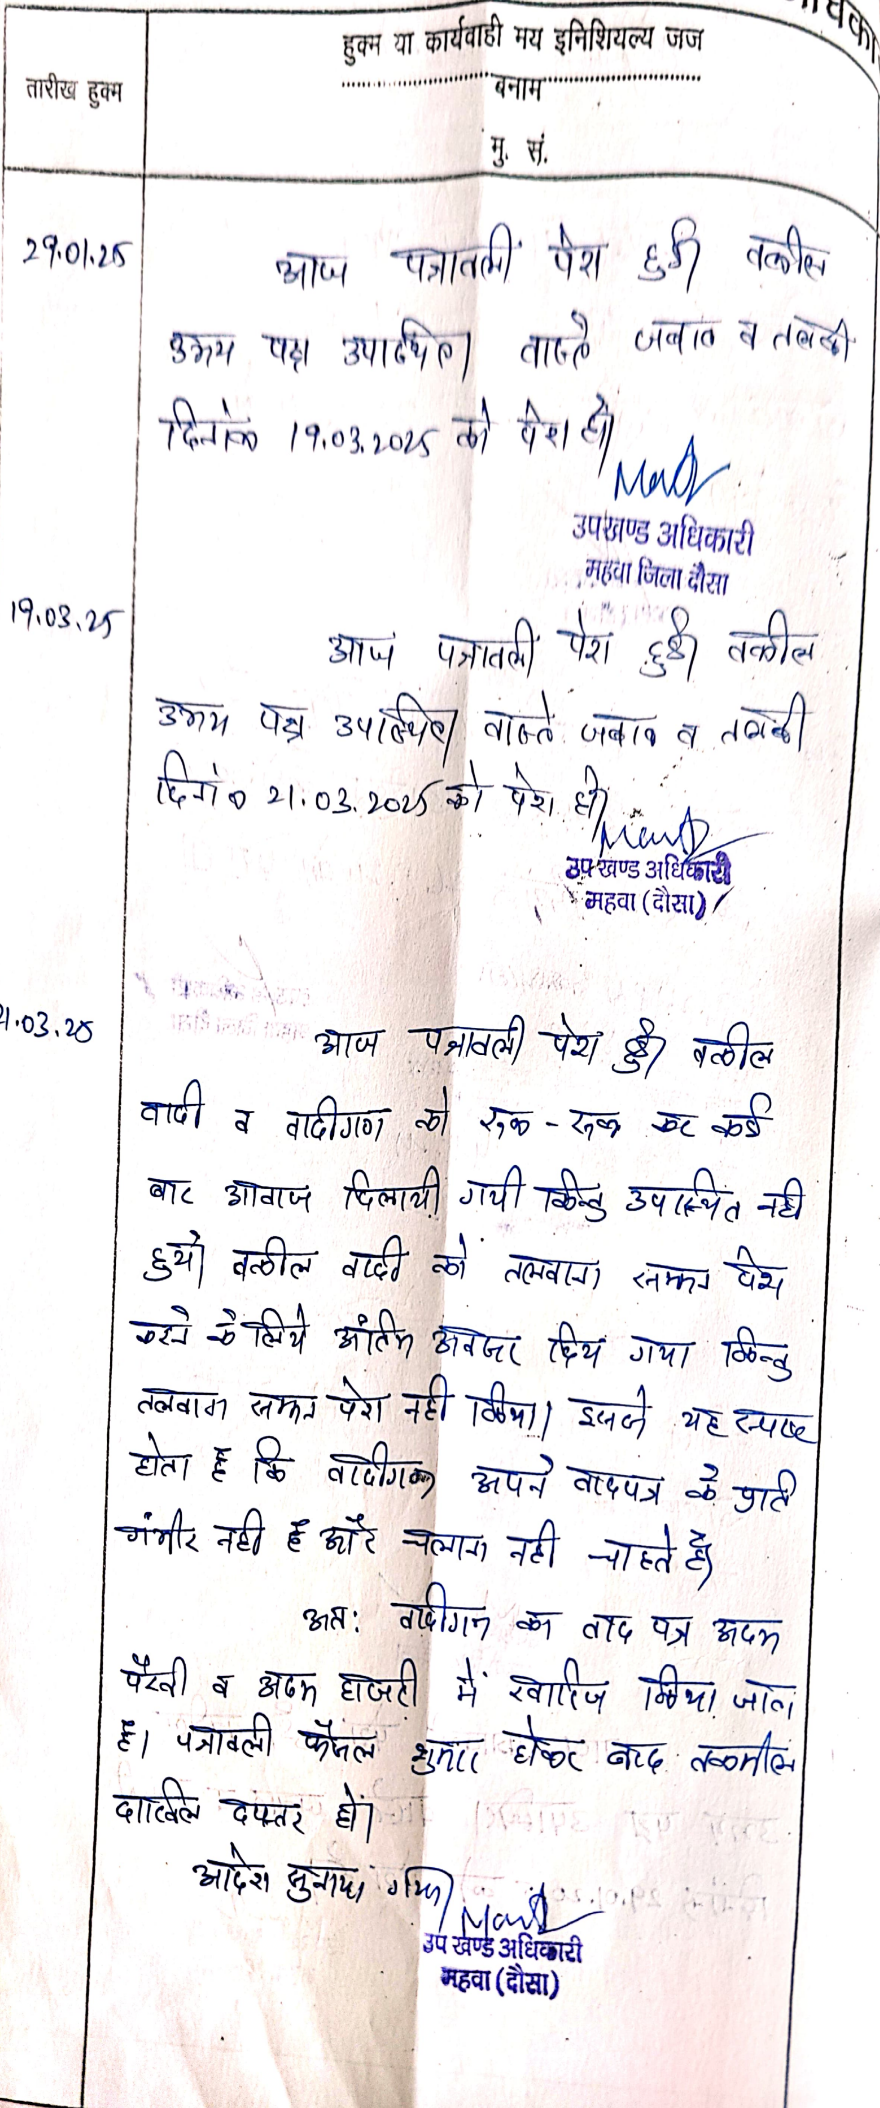 हुक्म या कार्यवाही मय इनिशियल्य जज
तारीख हुक्म
बनाम
मु. सं.
29.01.25
आज पत्रावली पेश हुई। वकील
उभय पक्ष उपस्थित। वास्ते जवाब व तलबी
दिनांक 19.03.2025 को पेश हो।
उपखण्ड अधिकारी
महवा जिला दौसा
19.03.25
आज पत्रावली पेश हुई। वकील
उभय पक्ष उपस्थित। वास्ते जवाब व तलबी
दिनांक 21.03.2025 को पेश हो।
उप खण्ड अधिकारी
महवा (दौसा)
1.03.25
आज पत्रावली पेश हुई। वकील
वादी व वादीगण को रूक - रूक कर कई
बार आवाज दिलायी गयी किन्तु उपस्थित नही
हुये। वकील वादी को तलवाना सम्मन पेश
करने के लिये अंतिम अवसर दिया गया किन्तु
तलवाना सम्मन पेश नही किया। इससे यह स्पष्ट
होता है कि वादीगण अपने वादपत्र के प्रति
गंभीर नही है और चलाना नही चाहते है।
अतः वादीगण का वाद पत्र अदम
पैरवी व अदम हाजरी में खारिज किया जाता
है। पत्रावली फैसल शुमार होकर बाद तकमील
दाखिल दफ्तर हो।
आदेश सुनाया गया।
उप खण्ड अधिकारी
महवा (दौसा)